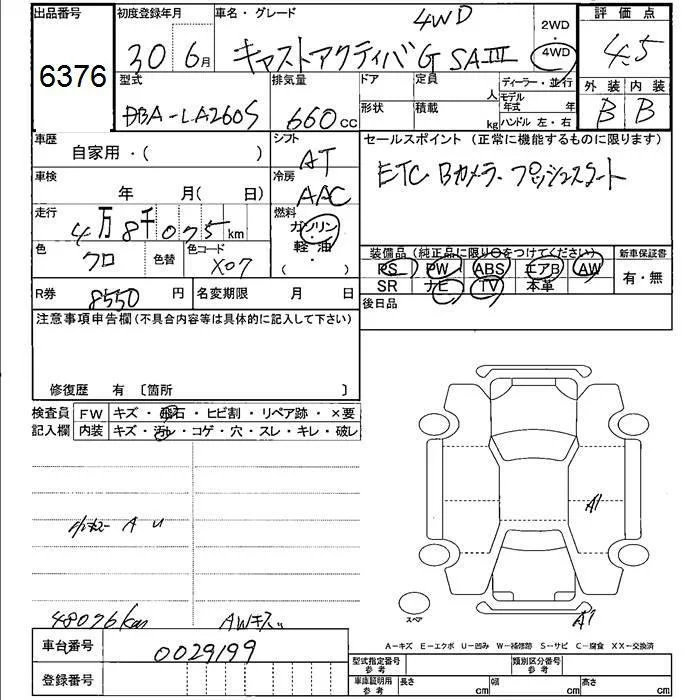 出品番号 初度登録年月 車名・グレード 4WD 2WD 評価点
6376 30 6月 キャストアクティバG SAIII 4WD 4.5
型式 排気量 ドア 定員 人 ディーラー・並行 外装 内装
DBA-LA260S 660cc 形状 積載 kg モデル年式 年 B B
ハンドル 左・右
車歴 自家用・( ) シフト AT セールスポイント(正常に機能するものに限ります)
車検 年 月( 日) 冷房 AAC ETC Bカメラ プッシュスタート
走行 4万8千075km 燃料 ガソリン・軽・油・( )
色 クロ 色替 色コード X07 装備品(純正品に限り○をつけてください) 新車保証書
PS PW ABS エアB AW 有・無
R券 8550円 名変期限 月 日 SR ナビ TV 本革
後日品
注意事項申告欄(不具合内容等は具体的に記入して下さい)
修復歴 有〔箇所 〕
検査員 FW キズ・飛石・ヒビ割・リペア跡・×要
記入欄 内装 キズ・汚れ・コゲ・穴・スレ・キレ・破レ
A U
A1
48076km AWキズ
スペア A1
A-キズ E-エクボ U-凹み W-補修跡 S-サビ C-腐食 XX-交換済
車台番号 0029199
型式指定番号 参考 類別区分番号 参考
登録番号
車庫証明用 参考 長さ cm 幅 cm 高さ cm